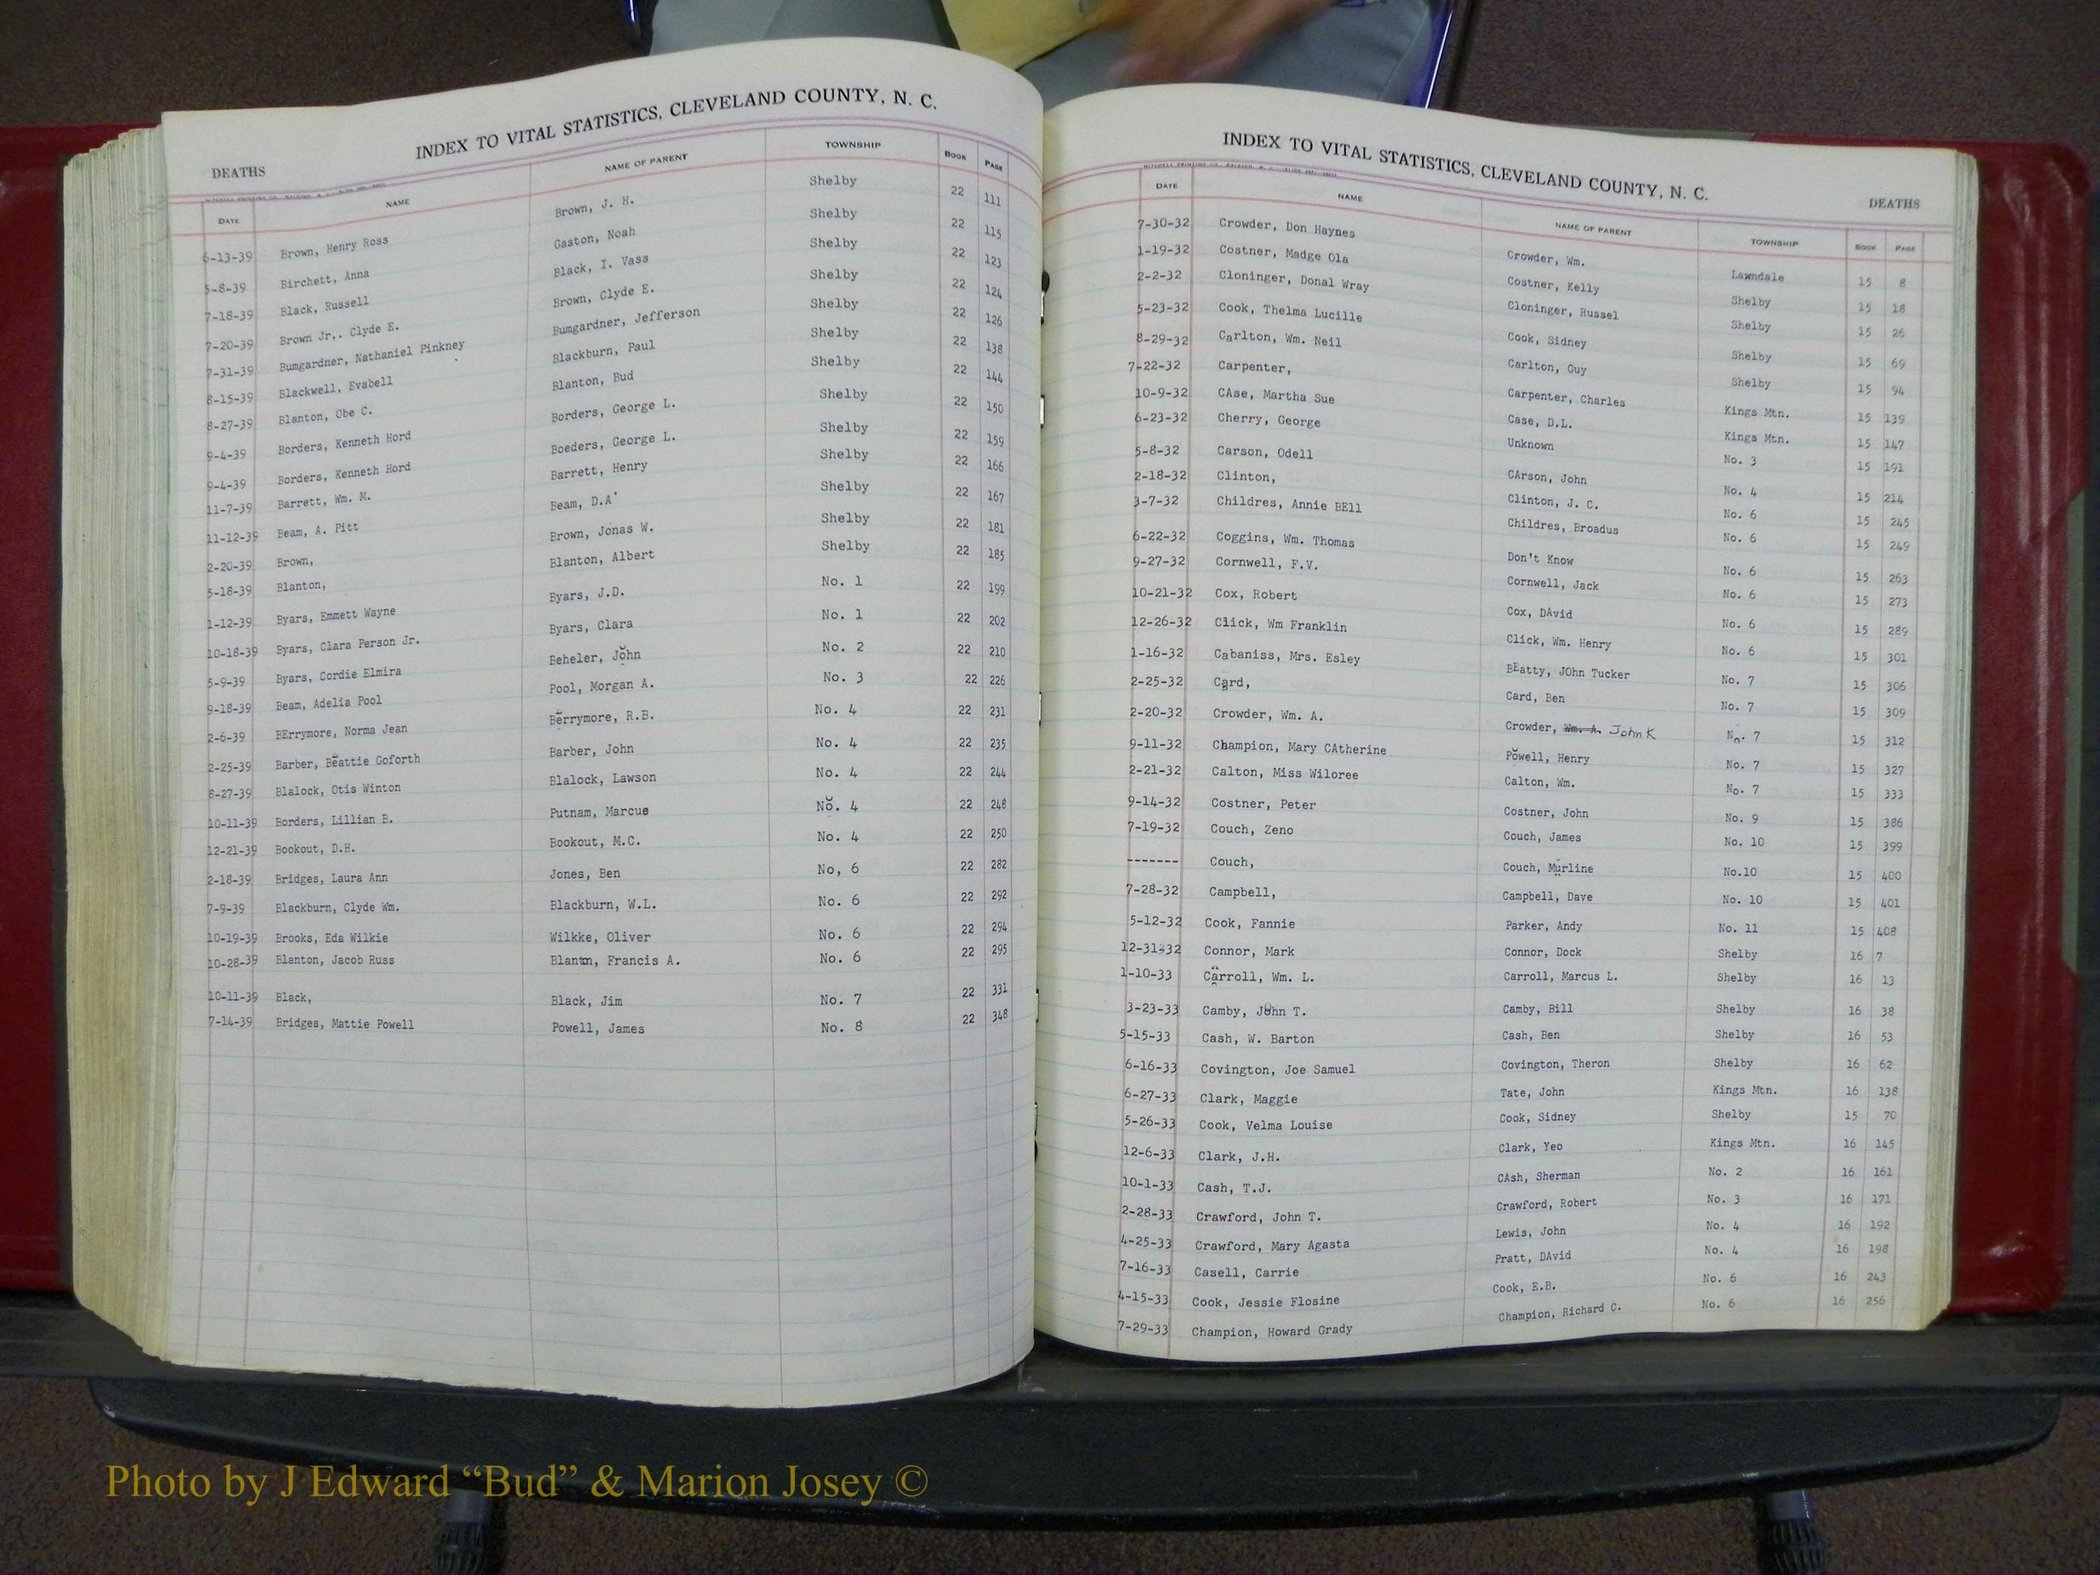 INDEX TO VITAL STATISTICS, CLEVELAND COUNTY, N. C.
DEATHS
DATE NAME NAME OF PARENT TOWNSHIP BOOK PAGE
6-13-39 Brown, Henry Ross Brown, J. H. Shelby 22 111
5-8-39 Birchett, Anna Gaston, Noah Shelby 22 115
7-18-39 Black, Russell Black, I. Vass Shelby 22 123
7-20-39 Brown Jr,. Clyde E. Brown, Clyde E. Shelby 22 124
7-31-39 Bumgardner, Nathaniel Pinkney Bumgardner, Jefferson Shelby 22 126
8-15-39 Blackwell, Evabell Blackburn, Paul Shelby 22 138
8-27-39 Blanton, Obe C. Blanton, Bud Shelby 22 144
9-4-39 Borders, Kenneth Hord Borders, George L. Shelby 22 150
9-4-39 Borders, Kenneth Hord Boeders, George L. Shelby 22 159
11-7-39 Barrett, Wm. M. Barrett, Henry Shelby 22 166
11-12-39 Beam, A. Pitt Beam, D.A. Shelby 22 167
2-20-39 Brown, Brown, Jonas W. Shelby 22 181
5-18-39 Blanton, Blanton, Albert Shelby 22 185
1-12-39 Byars, Emmett Wayne Byars, J.D. No. 1 22 199
10-18-39 Byars, Clara Person Jr. Byars, Clara No. 1 22 202
5-9-39 Byars, Cordie Elmira Beheler, John No. 2 22 210
9-18-39 Beam, Adelia Pool Pool, Morgan A. No. 3 22 226
2-6-39 BErrymore, Norma Jean Berrymore, R.B. No. 4 22 231
2-25-39 Barber, Beattie Goforth Barber, John No. 4 22 235
8-27-39 Blalock, Otis Winton Blalock, Lawson No. 4 22 244
10-11-39 Borders, Lillian B. Putnam, Marcus No. 4 22 248
12-21-39 Bookout, D.H. Bookout, M.C. No. 4 22 250
2-18-39 Bridges, Laura Ann Jones, Ben No, 6 22 282
7-9-39 Blackburn, Clyde Wm. Blackburn, W.L. No. 6 22 292
10-19-39 Brooks, Eda Wilkie Wilkke, Oliver No. 6 22 294
10-28-39 Blanton, Jacob Russ Blantn, Francis A. No. 6 22 295
10-11-39 Black, Black, Jim No. 7 22 331
7-14-39 Bridges, Mattie Powell Powell, James No. 8 22 348
INDEX TO VITAL STATISTICS, CLEVELAND COUNTY, N. C.
DEATHS
DATE NAME NAME OF PARENT TOWNSHIP BOOK PAGE
7-30-32 Crowder, Don Haynes Crowder, Wm. Lawndale 15 8
1-19-32 Costner, Madge Ola Costner, Kelly Shelby 15 18
2-2-32 Cloninger, Donal Wray Cloninger, Russel Shelby 15 26
5-23-32 Cook, Thelma Lucille Cook, Sidney Shelby 15 69
8-29-32 Carlton, Wm. Neil Carlton, Guy Shelby 15 94
7-22-32 Carpenter, Carpenter, Charles Kings Mtn. 15 139
10-9-32 CAse, Martha Sue Case, D.L. Kings Mtn. 15 147
6-23-32 Cherry, George Unknown No. 3 15 191
5-8-32 Carson, Odell CArson, John No. 4 15 214
2-18-32 Clinton, Clinton, J. C. No. 6 15 245
3-7-32 Childres, Annie BEll Childres, Broadus No. 6 15 249
6-22-32 Coggins, Wm. Thomas Don't Know No. 6 15 263
9-27-32 Cornwell, F.V. Cornwell, Jack No. 6 15 273
10-21-32 Cox, Robert Cox, DAvid No. 6 15 289
12-26-32 Click, Wm Franklin Click, Wm. Henry No. 6 15 301
1-16-32 Cabaniss, Mrs. Esley BEatty, JOhn Tucker No. 7 15 306
2-25-32 Card, Card, Ben No. 7 15 309
2-20-32 Crowder, Wm. A. Crowder, Wm. A. John K No. 7 15 312
9-11-32 Champion, Mary CAtherine Powell, Henry No. 7 15 327
2-21-32 Calton, Miss Wiloree Calton, Wm. No. 7 15 333
9-14-32 Costner, Peter Costner, John No. 9 15 386
7-19-32 Couch, Zeno Couch, James No. 10 15 399
------- Couch, Couch, Murline No.10 15 400
7-28-32 Campbell, Campbell, Dave No. 10 15 401
5-12-32 Cook, Fannie Parker, Andy No. 11 15 408
12-31-32 Connor, Mark Connor, Dock Shelby 16 7
1-10-33 Carroll, Wm. L. Carroll, Marcus L. Shelby 16 13
3-23-33 Camby, John T. Camby, Bill Shelby 16 38
5-15-33 Cash, W. Barton Cash, Ben Shelby 16 53
6-16-33 Covington, Joe Samuel Covington, Theron Shelby 16 62
6-27-33 Clark, Maggie Tate, John Kings Mtn. 16 138
5-26-33 Cook, Velma Louise Cook, Sidney Shelby 15 70
12-6-33 Clark, J.H. Clark, Yeo Kings Mtn. 16 145
10-1-33 Cash, T.J. CAsh, Sherman No. 2 16 161
2-28-33 Crawford, John T. Crawford, Robert No. 3 16 171
4-25-33 Crawford, Mary Agasta Lewis, John No. 4 16 192
7-16-33 Casell, Carrie Pratt, DAvid No. 4 16 198
4-15-33 Cook, Jessie Flosine Cook, E.B. No. 6 16 243
7-29-33 Champion, Howard Grady Champion, Richard C. No. 6 16 256
Photo by J Edward “Bud” & Marion Josey ©